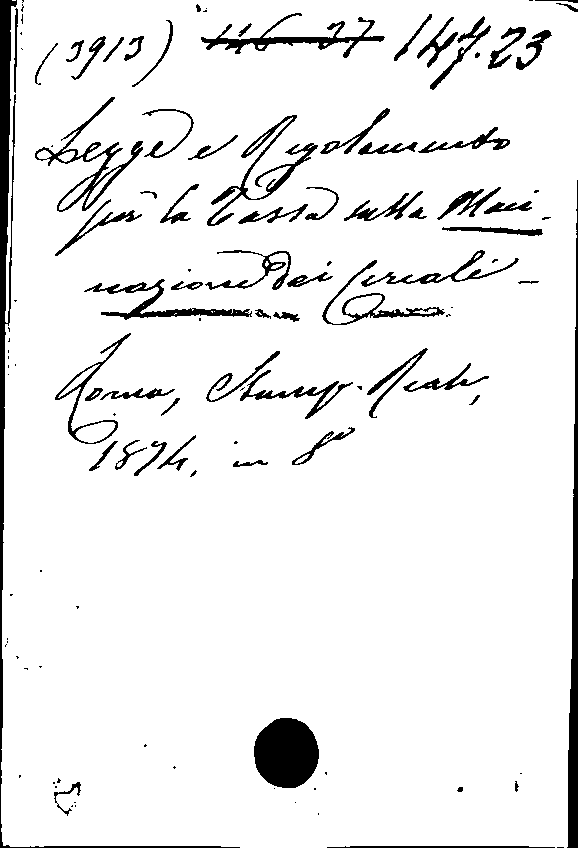 (3913) 116-37 147.23
Legge e Regolamento
per la Tassa sulla Maci-
nazione dei Cereali -
Roma, Stamp. Reale,
1874, in 8°